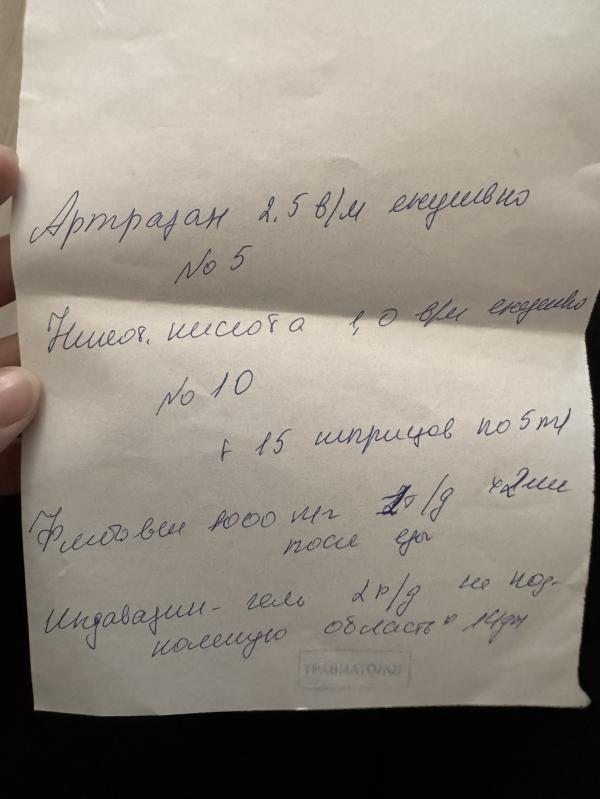 Артразан 2.5 в/м ежедневно
No 5
Никот. кислота 1,0 в/м ежедневно
No 10
+ 15 шприцов по 5 ml
Флебовен 1000 мг 1т/д х 2 мес
после еды
Индавазин - гель 2 р/д на под-
коленную область
ТРАВМАТОЛОГ